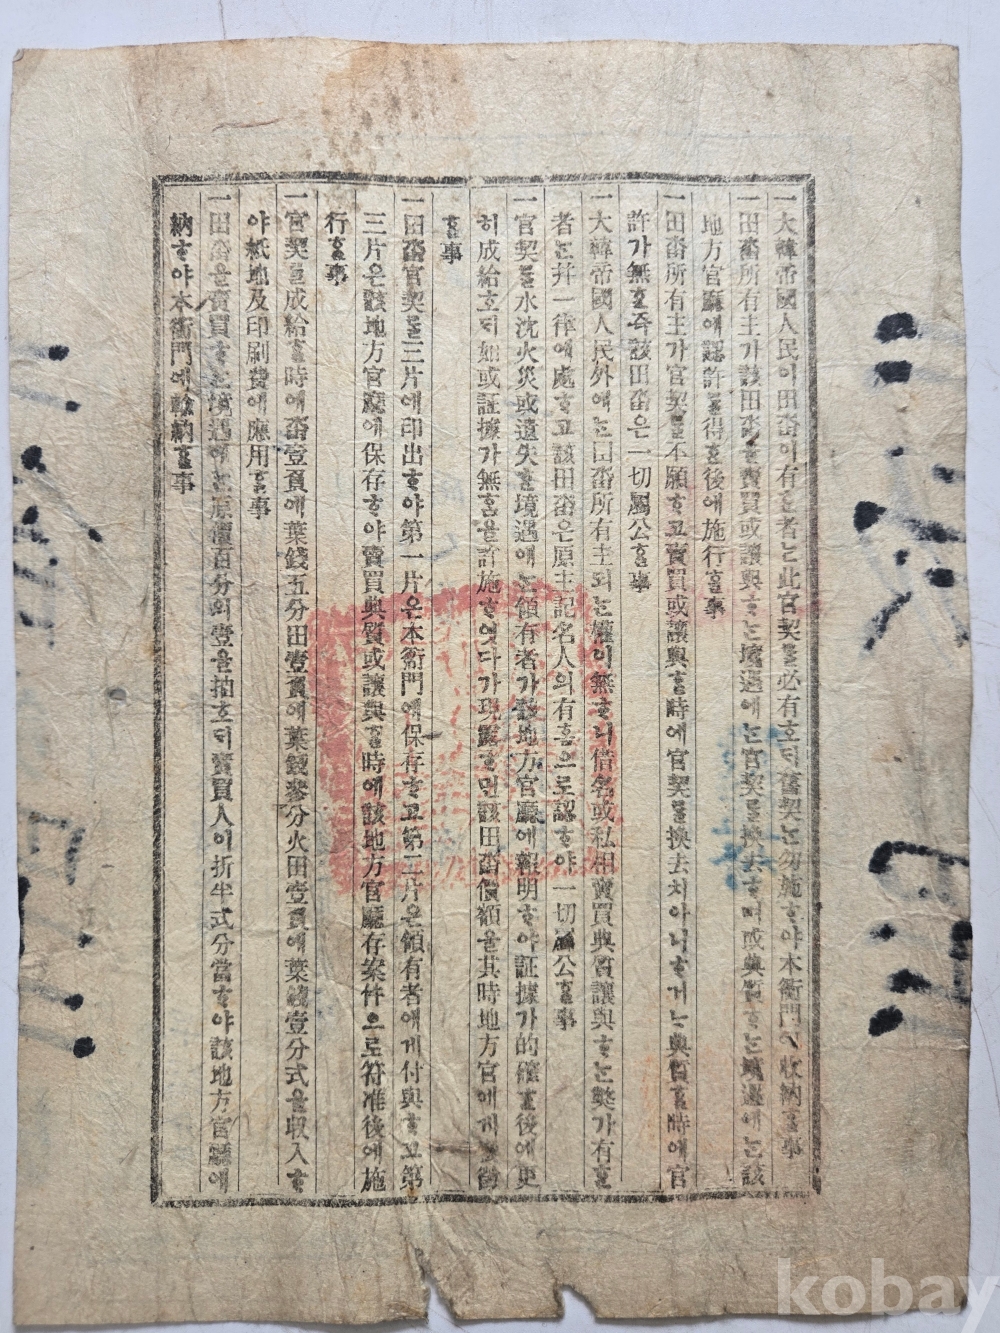 一大韓帝國人民이田畓이有ᄒᆞᆫ者ᄂᆞᆫ此官契ᄅᆞᆯ必有호ᄃᆡ舊契ᄂᆞᆫ勿施ᄒᆞ야本衙門에收納ᄒᆞᆯ事
一田畓所有主가該田畓賣買或讓與ᄒᆞᄂᆞᆫ境遇에ᄂᆞᆫ官契ᄅᆞᆯ換去ᄒᆞ며或典質ᄒᆞᄂᆞᆫ境遇에ᄂᆞᆫ該
地方官廳에認許ᄅᆞᆯ得ᄒᆞᆫ後에施行ᄒᆞᆯ事
一田畓所有主가官契ᄅᆞᆯ不願ᄒᆞ고賣買或讓與ᄒᆞᆯ時에官契ᄅᆞᆯ換去치아니ᄒᆞ거ᄂᆞ典質ᄒᆞᆯ時에官
許가無ᄒᆞᆫ즉該田畓은一切屬公ᄒᆞᆯ事
一大韓帝國人民外에ᄂᆞᆫ田畓所有主되ᄂᆞᆫ權이無ᄒᆞ니借名或私相賣買典質讓與ᄒᆞᄂᆞᆫ弊가有ᄒᆞᆫ
者ᄂᆞᆫ幷一律에處ᄒᆞ고該田畓은原主記名人의有홈으로認ᄒᆞ야一切屬公ᄒᆞᆯ事
一官契ᄅᆞᆯ水沈火災或遺失ᄒᆞᆫ境遇에ᄂᆞᆫ領有者가該地方官廳에報明ᄒᆞ야証據가的確ᄒᆞᆫ後에更
히成給호ᄃᆡ如或証據가無홈을許施ᄒᆞ엿다가現露ᄒᆞ면該田畓價額을其時地方官에게徵
ᄒᆞᆯ事
一田畓官契ᄅᆞᆯ三片에印出ᄒᆞ야第一片은本衙門에保存ᄒᆞ고第二片은領有者에게付與ᄒᆞ고第
三片은該地方官廳에保存ᄒᆞ야賣買典質或讓與ᄒᆞᆯ時에該地方官廳存案件으로符准後에施
行ᄒᆞᆯ事
一官契ᄅᆞᆯ成給ᄒᆞᆯ時에畓壹負에葉錢五分田壹負에葉錢參分火田壹負에葉錢壹分式을収入ᄒᆞ
야紙地及印刷費에應用ᄒᆞᆯ事
一田畓을賣買ᄒᆞᄂᆞᆫ境遇에ᄂᆞᆫ原價百分의壹을抽호ᄃᆡ賣買人이折半式分當ᄒᆞ야該地方官廳에
納ᄒᆞ야本衙門에輸納ᄒᆞᆯ事
kobay